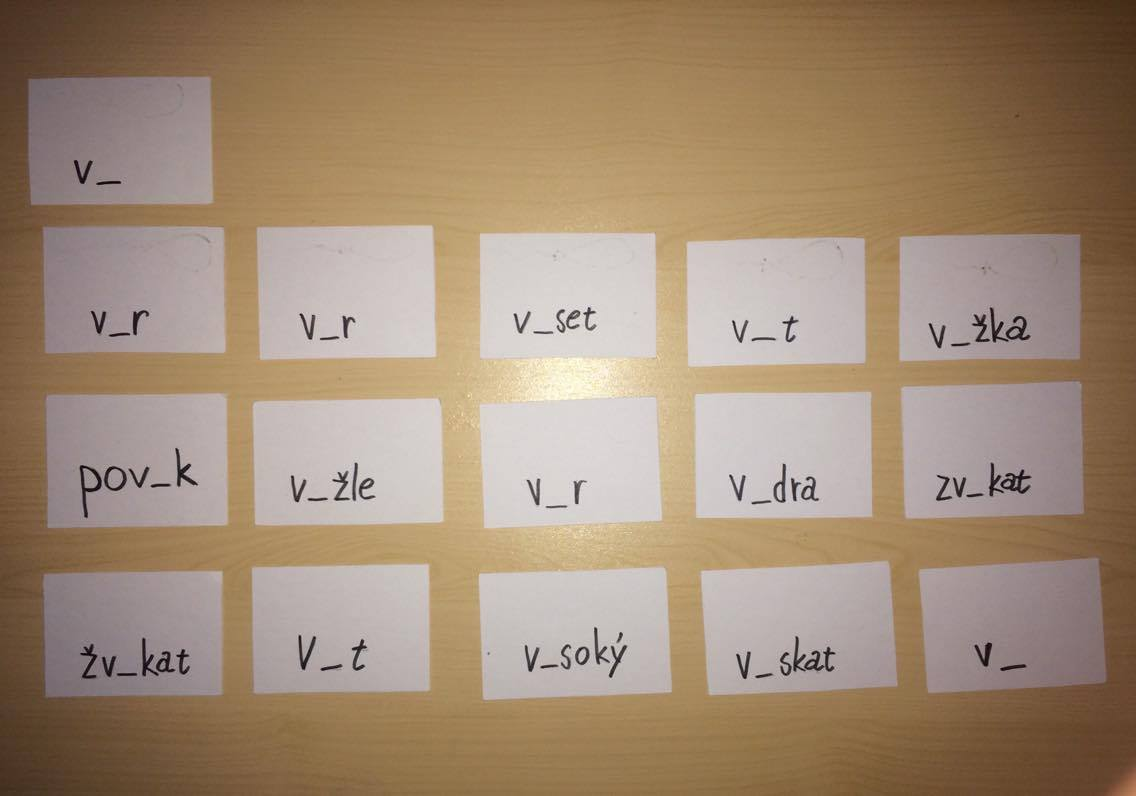 v_
v_r
v_r
v_set
v_t
v_žka
pov_k
v_žle
v_r
v_dra
zv_kat
žv_kat
v_t
v_soký
v_skat
v_